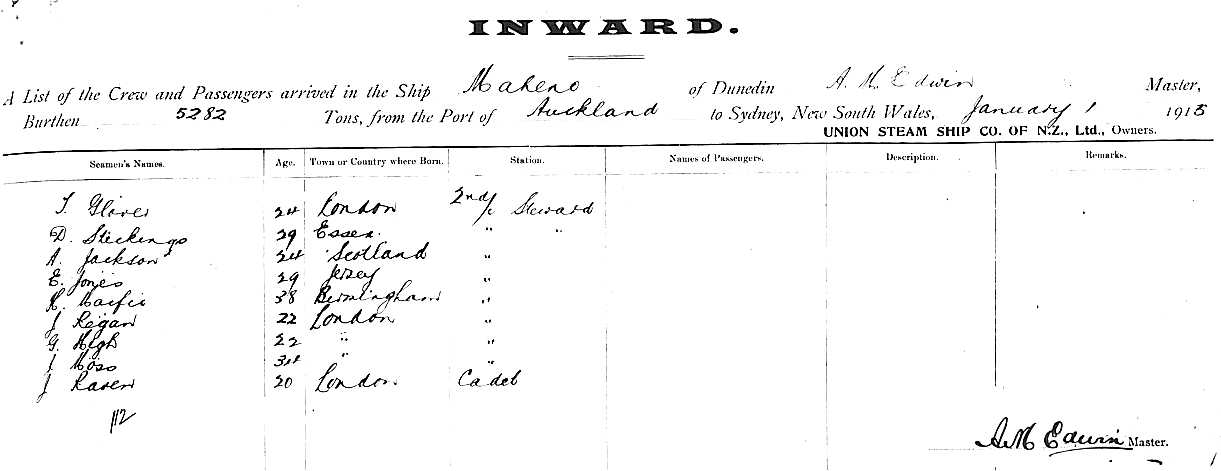 INWARD.
A List of the Crew and Passengers arrived in the Ship Maheno of Dunedin A. M. Edwin Master,
Burthen 5282 Tons, from the Port of Auckland to Sydney, New South Wales, January 1 1915
UNION STEAM SHIP CO. OF N.Z., Ltd., Owners.
Seamen's Names. Age. Town or Country where Born. Station. Names of Passengers. Description. Remarks.
T. Glover 24 London 2nd/c Steward
D. Steckings 29 Essex. " "
A. Jackson 24 Scotland "
E. Jones 29 Jersey "
38 Birmingham "
J Regan 22 London "
G. High 22 " "
J Moss 34 " "
J Raven 20 London Cadet
112
A M Edwin Master.